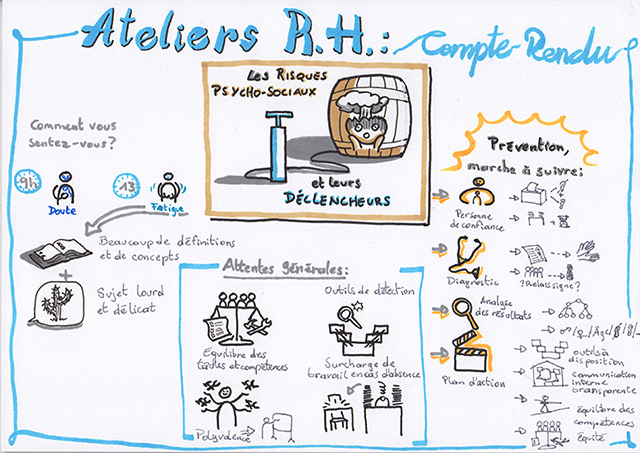 Ateliers R.H.: Compte-Rendu
Les Risques
Psycho-Sociaux
et leurs
Déclencheurs
Comment vous
sentez-vous?
9h
Doute
13
Fatigue
Beaucoup de définitions
et de concepts
+
Sujet lourd
et délicat
Attentes générales:
Équilibre des
tâches et compétences
Outils de détection
Surcharge de
travail en cas d'absence
Polyvalence
Prévention,
marche à suivre:
Personne
de confiance
Diagnostic
? Relassigne?
Analyse
des résultats
Plan d'action
outils à
disposition
communication
interne
transparente
équilibre des
compétences
Équité